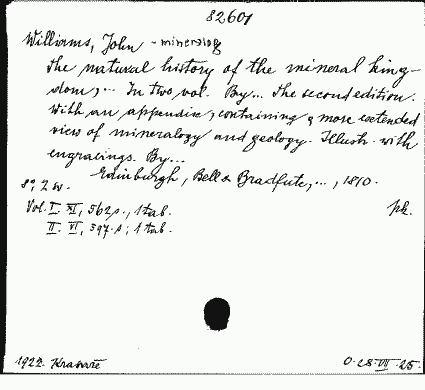 82601
Williams, John - mineralog
The natural history of the mineral king-
dom,... In two vol. By... The second edition.
With an appendix, containing a more extended
view of mineralogy and geology. Illustr. with
engravings. By...
Edinburgh, Bell & Bradfute,..., 1810.
8°, 2 w.
Vol. I. XI, 562 s., 1 tab. pk.
II. VI, 397 s., 1 tab.
1922. Kravaře O-28-VII-25.